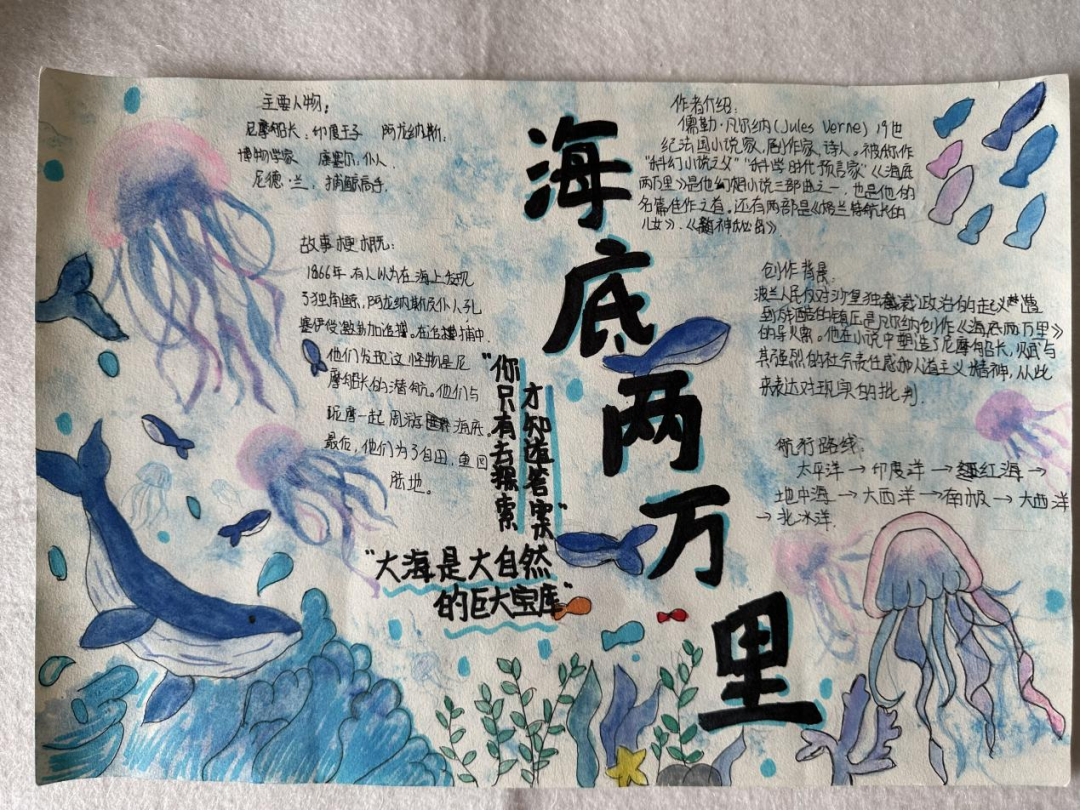 海底两万里
主要人物：
尼摩船长：印度王子 阿龙纳斯：
博物学家 康塞尔：仆人
尼德·兰：捕鲸高手
故事梗概：
1866年 有人以为在海上发现
了独角鲸，阿龙纳斯及仆人孔
塞伊受邀参加追捕。在追捕中
他们发现这怪物是尼
摩船长的潜航。他们与
尼摩一起周游 海底。
最后，他们为了自由，重回
陆地。
"你只有去探索
才知道答案"
"大海是大自然
的巨大宝库"
作者介绍：
儒勒·凡尔纳(Jules Verne) 19世
纪法国小说家、剧作家、诗人。被称作
"科幻小说之父""科学时代预言家"《海底
两万里》是他幻想小说三部曲之一，也是他的
名篇佳作之首。还有两部是《格兰特船长的
儿女》、《神秘岛》
创作背景：
波兰人民反对沙皇独裁 政治的起义遭
到残酷的镇压是凡尔纳创作《海底两万里》
的导火索。他在小说中塑造了尼摩船长，赋与
其强烈的社会责任感和人道主义精神，从此
来表达对现实的批判
航行路线：
太平洋→印度洋→红海→
地中海→大西洋→南极→大西洋
→北冰洋